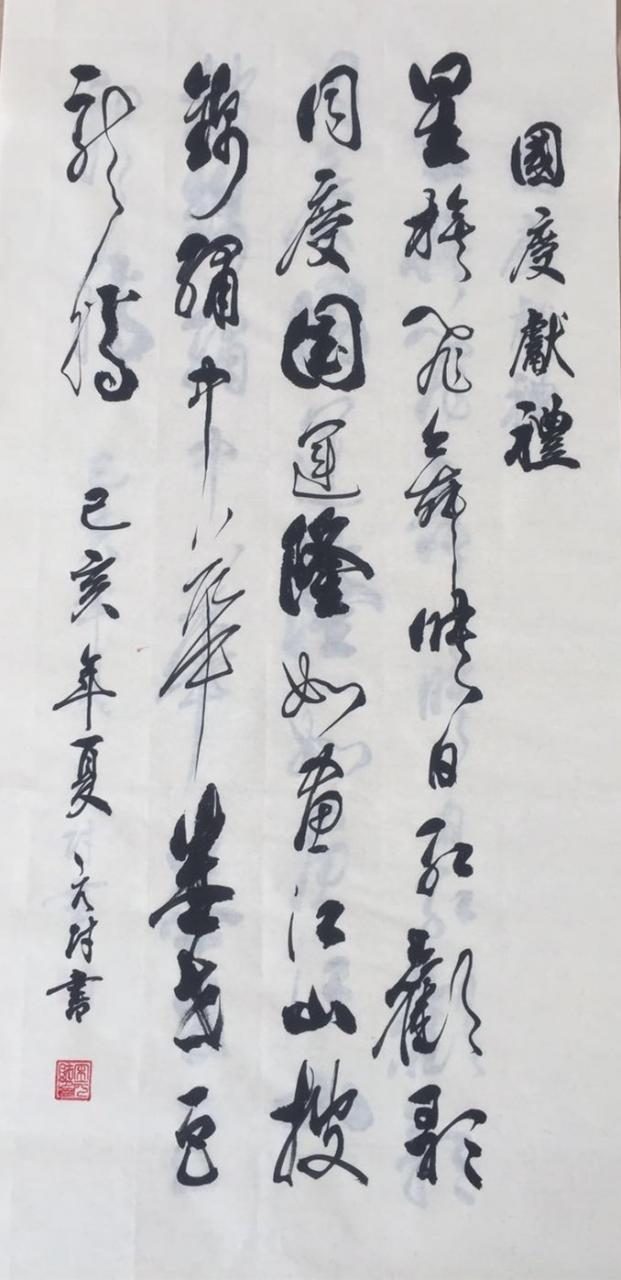 國慶獻禮
星旗飛舞映日紅歡歌
同慶國運隆如畫江山披
錦繡中華盛世巨
龍騰 己亥年夏 元 書